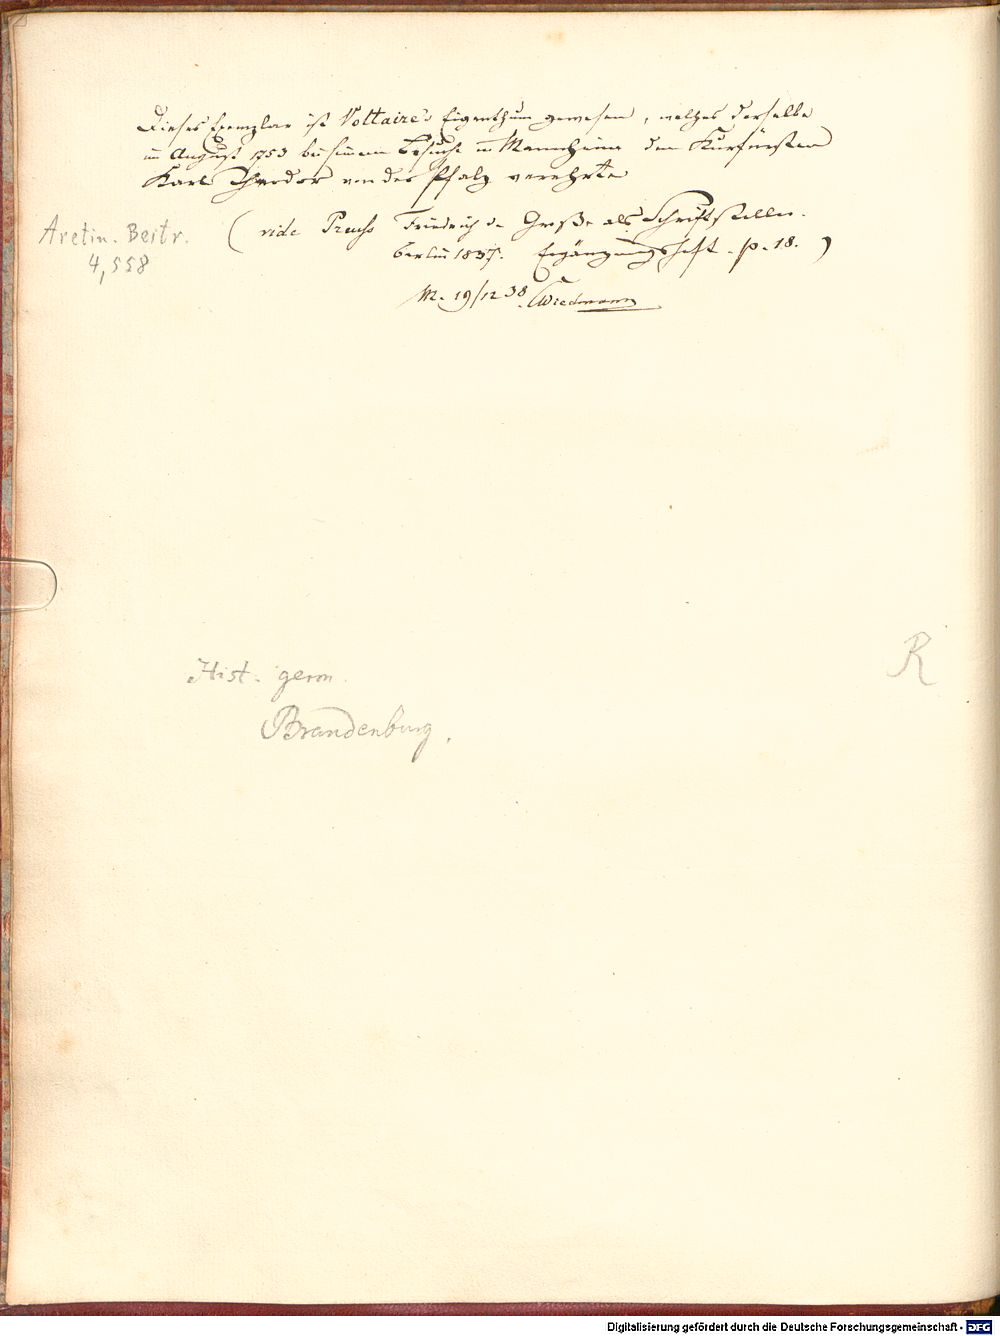 Dieses Exemplar ist Voltaire's Eigenthum gewesen, welches derselbe
im August 1753 bei seinem Besuche in Mannheim dem Kurfürsten
Karl Theodor von der Pfalz verehrte
(vide Preuss Friedrich der Große als Schriftsteller.
Berlin 1837. Ergänzungsheft. p. 18.)
M. 19/12 38. Wiedmann
Aretin. Beitr.
4,558
R
Hist. germ.
Brandenburg.
Digitalisierung gefördert durch die Deutsche Forschungsgemeinschaft - DFG